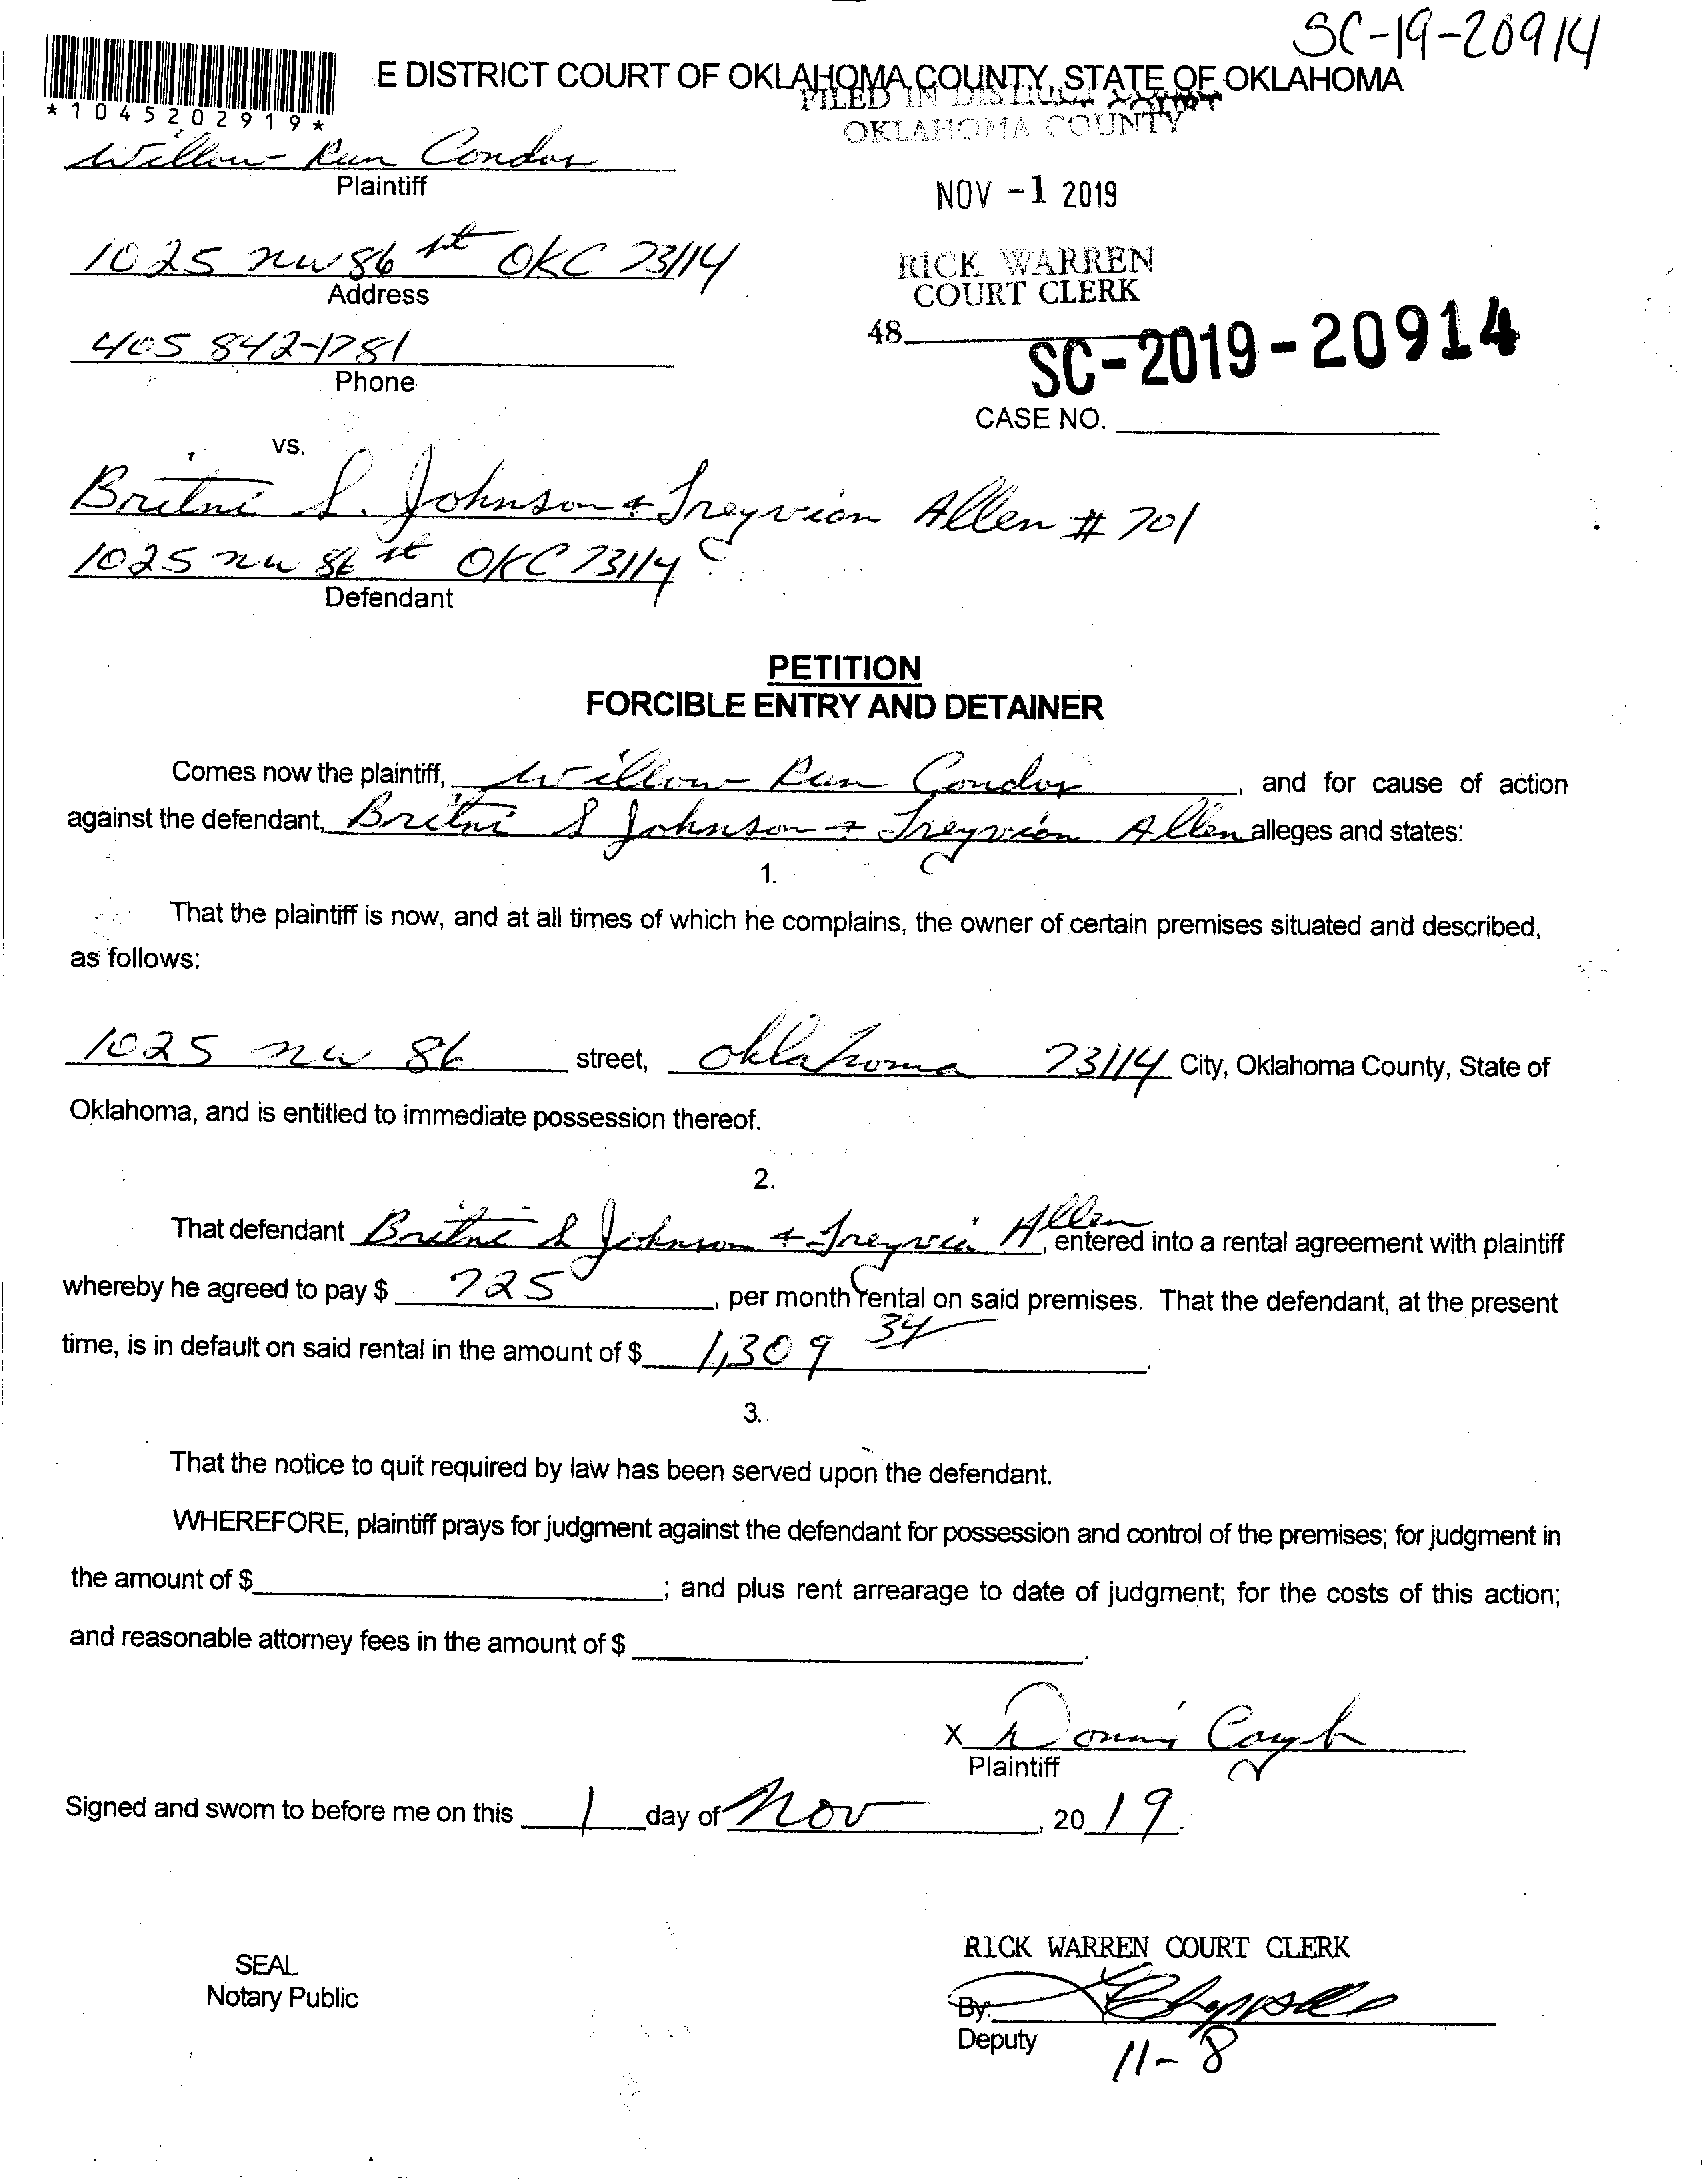 SC-19-20914
E DISTRICT COURT OF OKLAHOMA COUNTY, STATE OF OKLAHOMA
*1045202919*
FILED IN DISTRICT COURT
OKLAHOMA COUNTY
Willow Run Condos
Plaintiff
NOV -1 2019
1025 nw 86 st OKC 73114
Address
RICK WARREN
COURT CLERK
405 842-1781
Phone
48
SC-2019-20914
CASE NO.
vs.
Britni S. Johnson + Treyvion Allen # 701
1025 nw 86 st OKC 73114
Defendant
PETITION
FORCIBLE ENTRY AND DETAINER
Comes now the plaintiff, Willow Run Condos, and for cause of action
against the defendant, Britni S Johnson + Treyvion Allen alleges and states:
1.
That the plaintiff is now, and at all times of which he complains, the owner of certain premises situated and described,
as follows:
1025 nw 86 street, Oklahoma 73114 City, Oklahoma County, State of
Oklahoma, and is entitled to immediate possession thereof.
2.
That defendant Britni S Johnson + Treyvion Allen, entered into a rental agreement with plaintiff
whereby he agreed to pay $ 725, per month rental on said premises. That the defendant, at the present
time, is in default on said rental in the amount of $ 1,309 34.
3.
That the notice to quit required by law has been served upon the defendant.
WHEREFORE, plaintiff prays for judgment against the defendant for possession and control of the premises; for judgment in
the amount of $ ; and plus rent arrearage to date of judgment; for the costs of this action;
and reasonable attorney fees in the amount of $ .
X
Plaintiff
Signed and sworn to before me on this 1 day of Nov, 20 19.
RICK WARREN COURT CLERK
SEAL
Notary Public
By:
Deputy
11-8